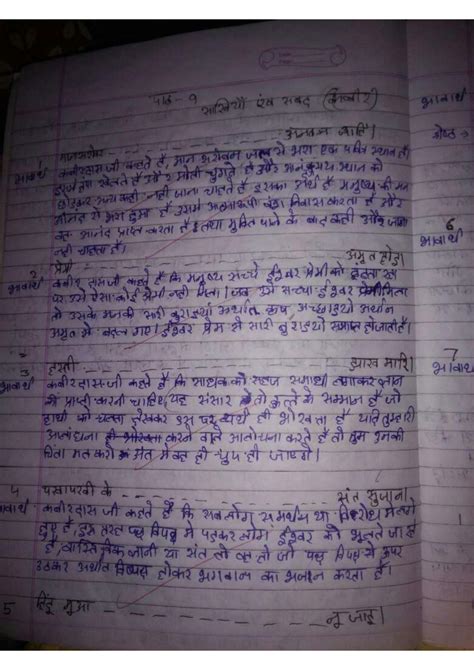 पाठ - 9
साखियाँ एवं सबद (कबीर)
मानसरोवर - - - - अनत न जाहिं।
भावार्थ 1 कबीरदास जी कहते हैं, मान सरोवर जल से भरा एक पवित्र स्थान है।
हंस खेलते हैं और मोती चुगते हैं और आनंदमय स्थान को
छोड़कर अन्य कहीं नहीं जाना चाहते हैं इसका अर्थ है मनुष्य की मन
से भरा हुआ है उसमें आत्मारूपी हंस निवास करता है और
वह आनंद प्राप्त करता है तथा मुक्ति पाने के बाद कहीं और जाना
नहीं चाहता है।
प्रेमी - - - - अमृत होइ।
2 भावार्थ कबीर दास जी कहते हैं कि मनुष्य सच्चे ईश्वर प्रेमी को ढूंढता रहा
पर उसे ऐसा कोई प्रेमी नहीं मिला। जब उसे सच्चा ईश्वर प्रेमी मिला
तो उसके मनकी सारी बुराइयाँ अर्थात् अच्छाइयों अर्थात
अमृत में बदल गए। ईश्वर प्रेम से सारी बुराइयाँ समाप्त हो जाती हैं।
हस्ती - - - - झख मारि।
3 भावार्थ कबीरदास जी कहते हैं कि साधक को सहज समाधी लगाकर ज्ञान
की प्राप्ती करनी चाहिए, यह संसार तो कुत्ते के समान है जो
हाथी को चलता देखकर उस पर व्यर्थ ही भोंकता है यदि तुम्हारी
आलोचना करने वाले आलोचना करते हैं तो तुम उनकी
चिंता मत करो अंत में वह ही चुप हो जाएगी।
4 पखापखी के - - - - संत सुजान।
भावार्थ कबीरदास जी कहते हैं कि सब लोग समर्थन या विरोध में लगे
हुए हैं, इस तरह पक्ष विपक्ष में पड़कर लोग ईश्वर को भूलते जा रहे
हैं, वास्तविक ज्ञानी या संत तो वह तो जो पक्ष विपक्ष से ऊपर
उठकर अर्थात निष्पक्ष होकर भगवान का भजन करता है।
5 हिंदू मूआ - - - - न जाइ।
भावार्थ
6
भावार्थ
7
भावार्थ